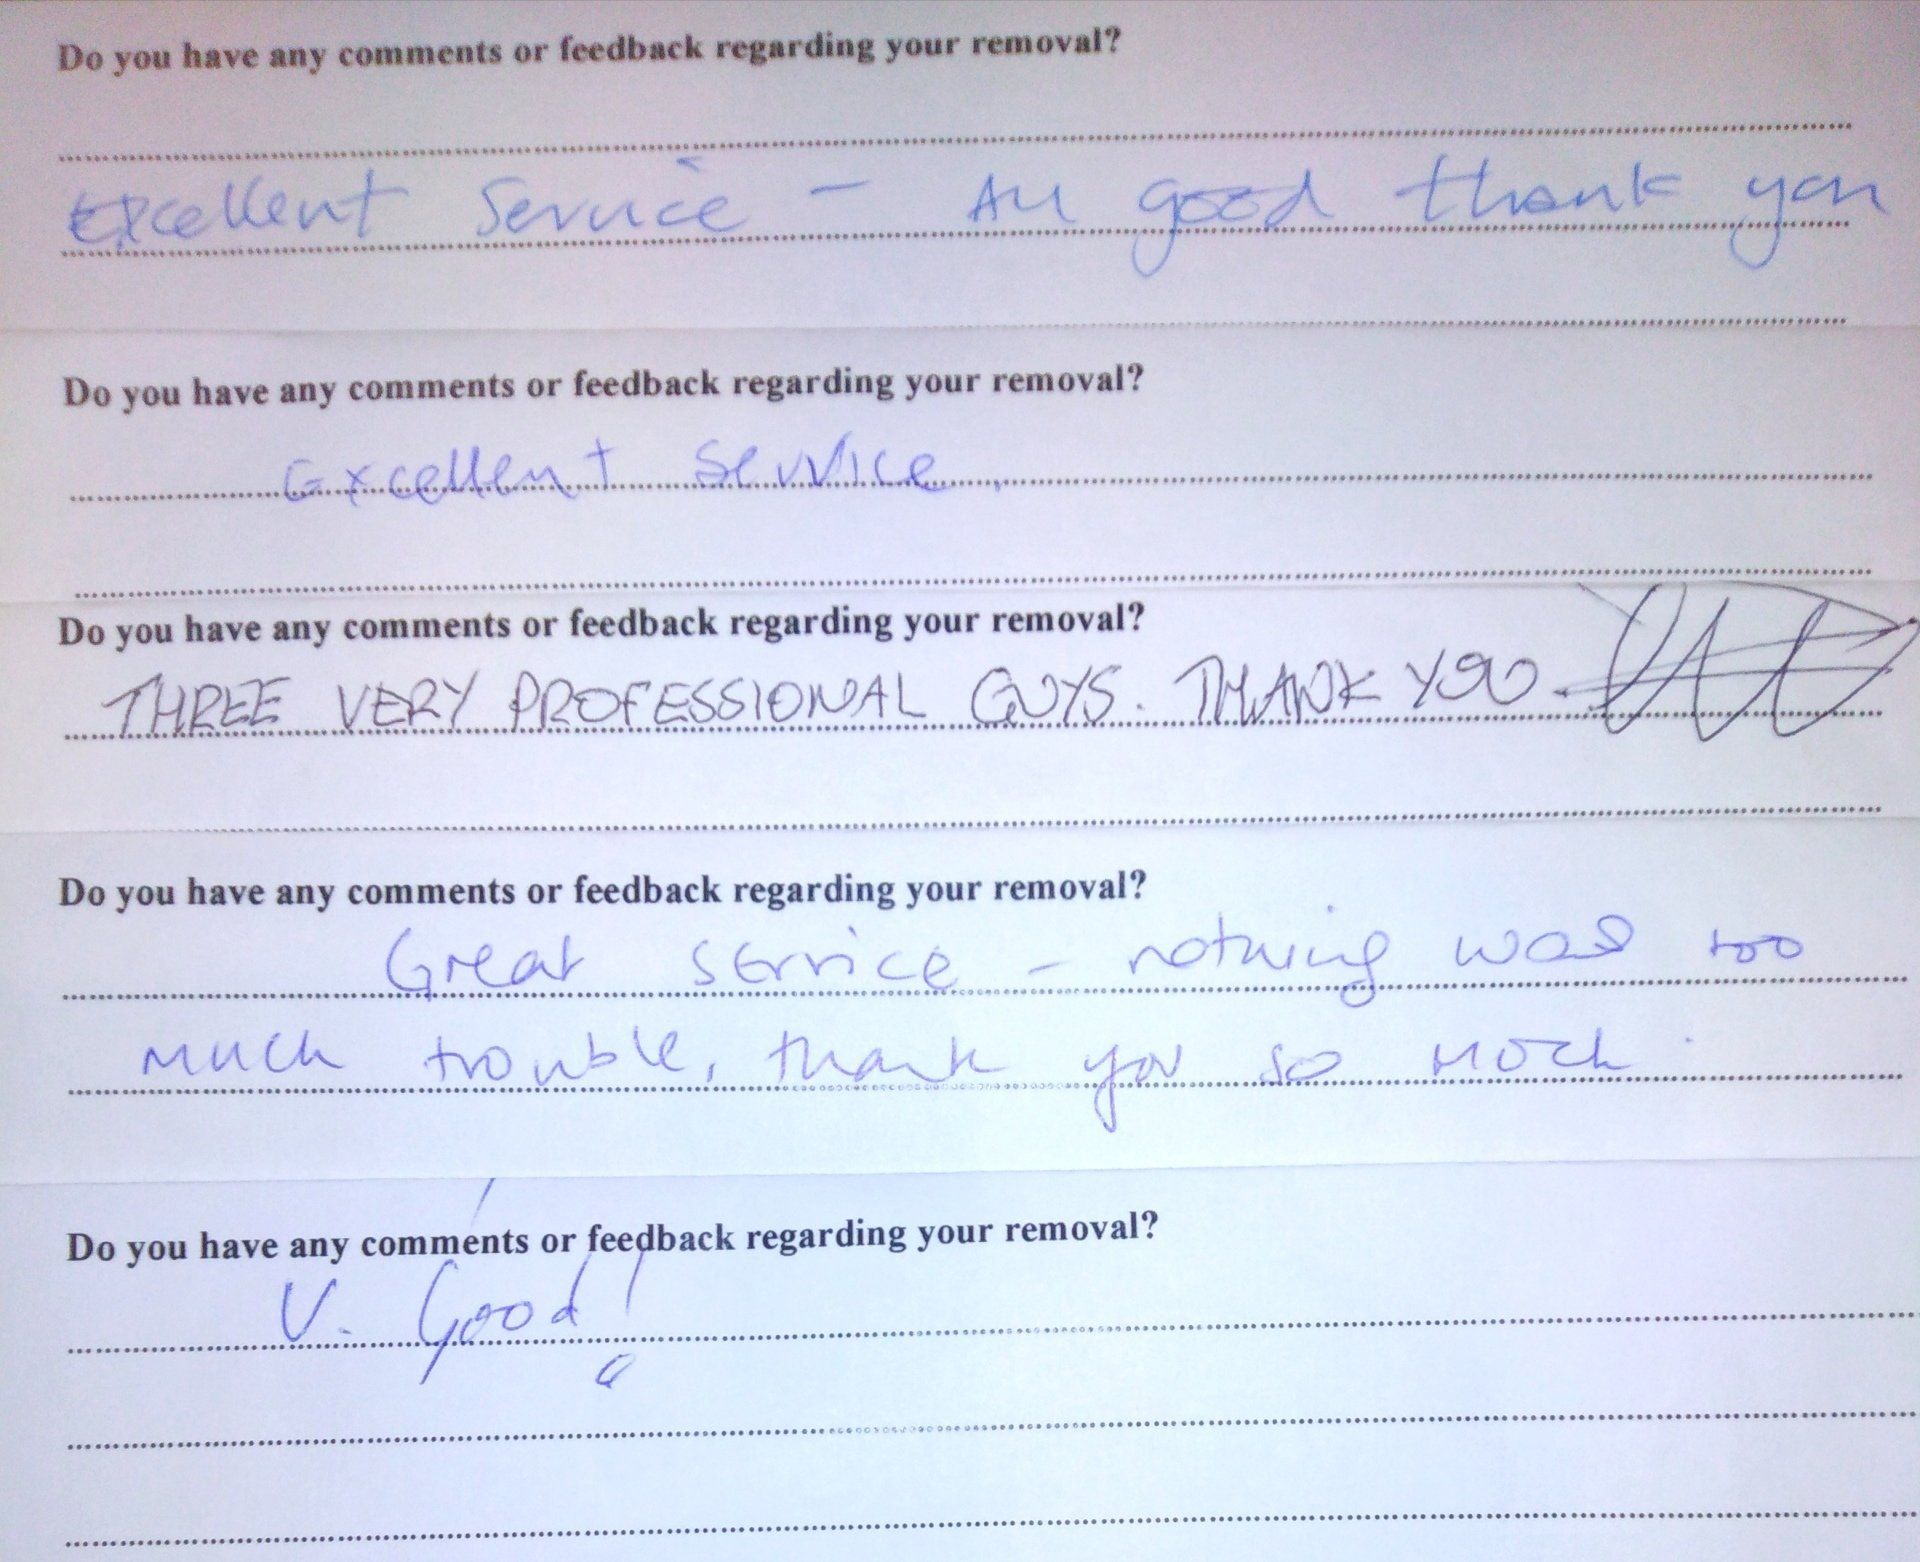 Do you have any comments or feedback regarding your removal?
Excellent Service - All good thank you
Do you have any comments or feedback regarding your removal?
Excellent Service.
Do you have any comments or feedback regarding your removal?
THREE VERY PROFESSIONAL GUYS. THANK YOU.
Do you have any comments or feedback regarding your removal?
Great service - nothing was too
much trouble, thank you so much.
Do you have any comments or feedback regarding your removal?
V. Good!